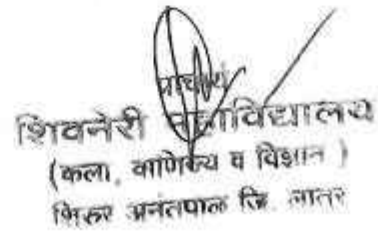 प्राचार्य
शिवनेरी महाविद्यालय
(कला, वाणिज्य व विज्ञान )
शिरूर अनंतपाळ जि. लातूर